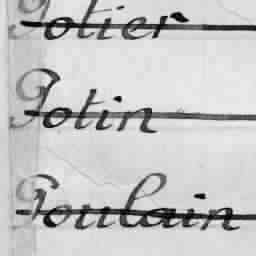 Potier
Potin
Poulain